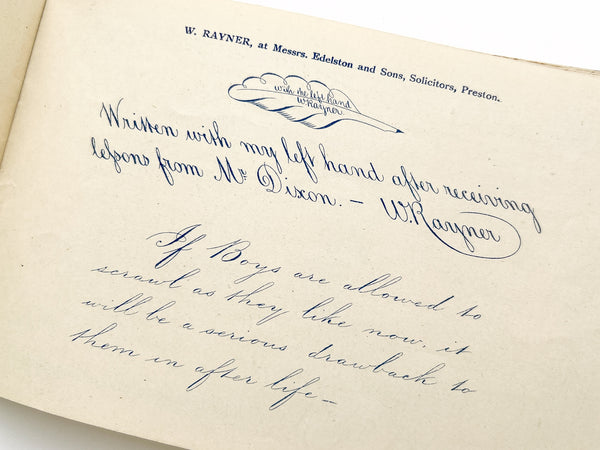 W. RAYNER, at Messrs. Edelston and Sons, Solicitors, Preston.
with the left hand
W Rayner
Written with my left hand after receiving
leſsons from Mr Dixon. — W. Rayner
If Boys are allowed to
scrawl as they like now, it
will be a serious drawback to
them in after life —